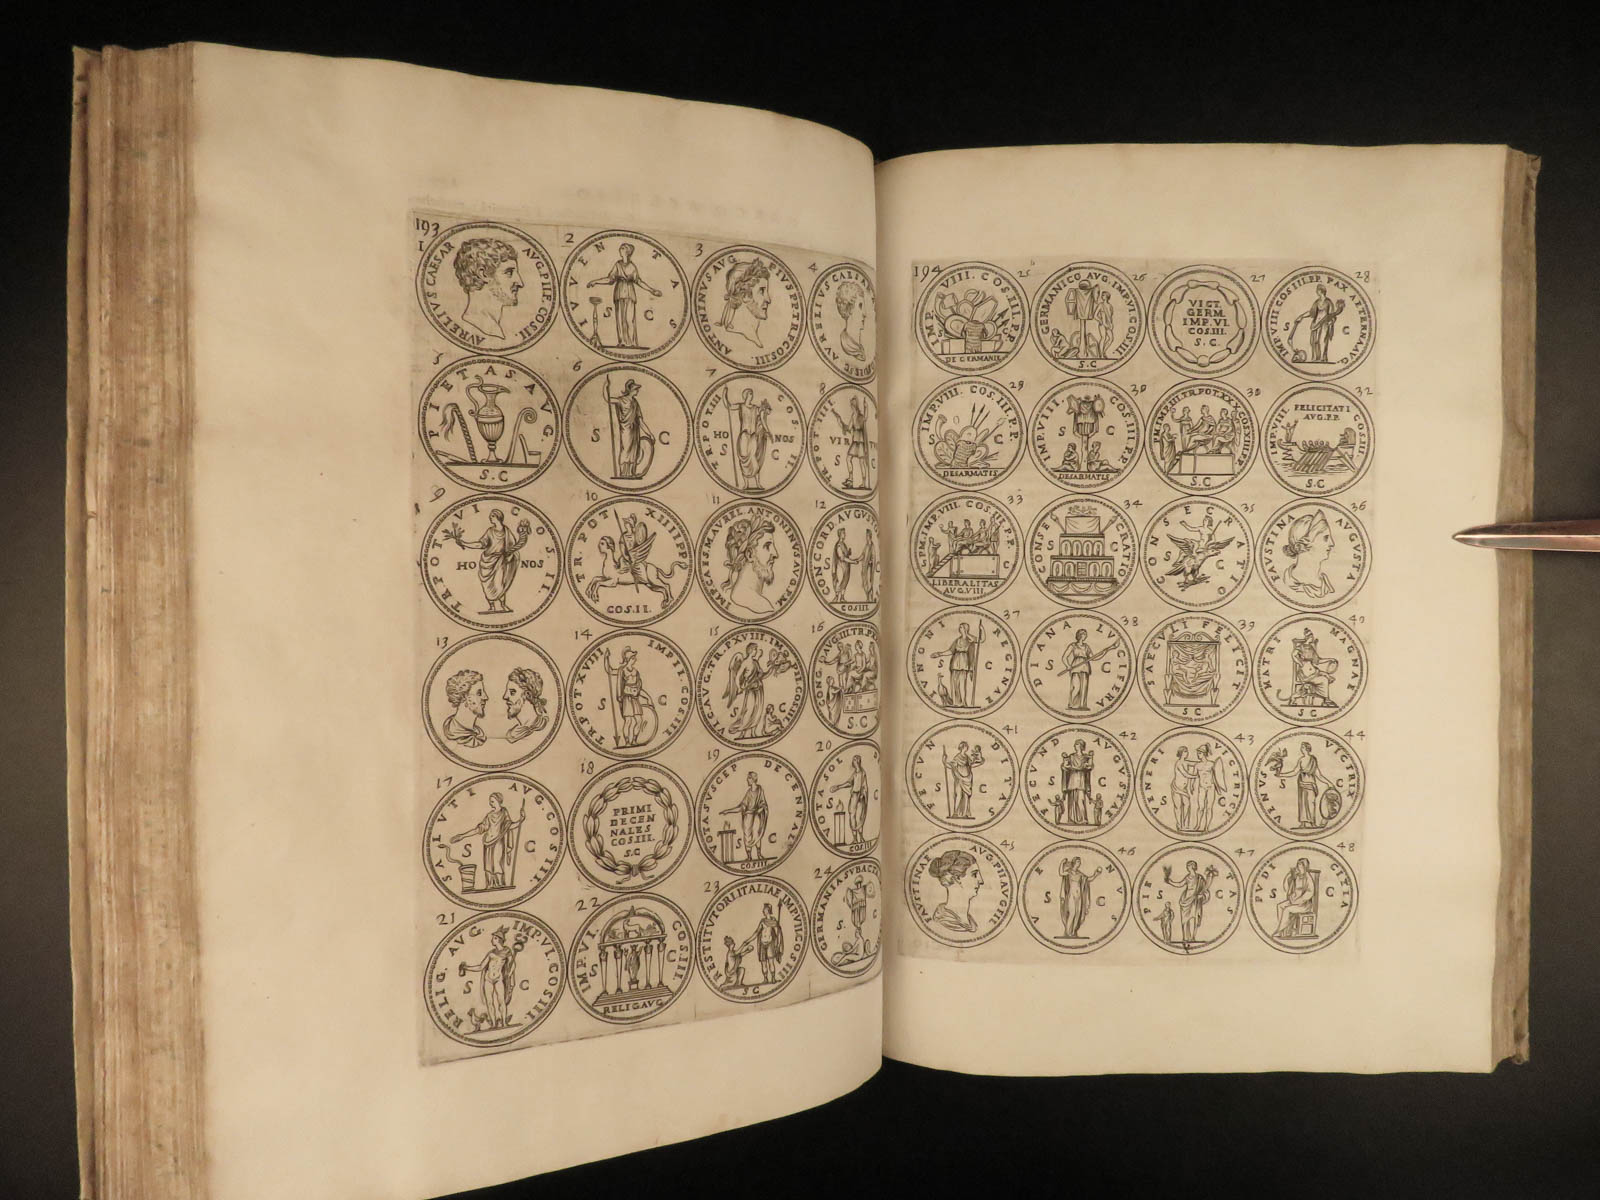 193
1
AVRELIVS CAESAR AVG.PII F.COSII.
2
IVVENTAS
S C
3
ANTONINVS AVG PIVS PP.TRP.COS III.
4
AVRELIVS CAESAR
5
PIETAS AVG.
S.C
6
S C
7
TR.POT.III COS.II
HONOS
S C
8
TR.POT IIII
VIR
S C
9
TR POT VI COS.II.
HONOS
10
TR.POT XIIII PP
COS.II.
11
IMP.CAES.M.AVREL.ANTONINVS AVG.P.M
12
CONCORD.AVGVST
S C
COSIII
13
14
TR.POT XVIII IMP II COSIII
S C
15
VIC.AVG.TR.P.XVIII.IMP.II.COSIII
S C
16
CONG.D.AVG.III.TR.P
S.C
17
SALVTI AVG.COSIII.
S C
18
PRIMI
DECEN
NALES
COS.III.
S.C
19
VOTA SVSCEP DECENNAL
S C
COSIII
20
VOTA SOL
S C
COSIII
21
RELIG. AVG. IMP.VI.COSIII.
S C
22
IMP.VI. COS.III
S C
RELIG.AVG
23
RESTITVTORI ITALIAE IMP.VI.COS III
S C
24
GERMANIA SVBACTA
S.
194
25
IMP. VIII. COS.III.P.P.
S C
DE GERMANIS
26
GERMANICO AVG.IMP.VI.COS III
S.C
27
VICT.
GERM.
IMP.VI.
COS.III.
S.C.
28
IMP VIII COS III.PP. PAX AETERNA AVG.
S C
29
IMP.VIII. COS.III.P.P.
S C
DESARMATIS
30
IMP.VIII. COS.III P.P
S C
DESARMATIS
30
S.C
32
IMP.VIII COS.III
FELICITATI
AVG.P.P.
S.C
33
IMP.VIII COS III P.P.
C
LIBERALITAS
AVG.VIII.
34
CONSECRATIO
S C
35
CONSECRATIO
S C
36
FAVSTINA AVGVSTA
37
IVNONI REGINAE
S C
38
DIANA LVCIFERA
S C
39
SAECVLI FELICIT
S C
40
MATRI MAGNAE
S C
41
FECVNDITAS
S C
42
FECVND AVGVSTAE
S C
43
VENERI VICTRICI
S C
44
VENVS VICTRIX
S C
45
FAVSTINAE AVG.PII AVG FIL
46
VENVS
S C
47
PIETAS
S C
48
PVDICITIA
S C